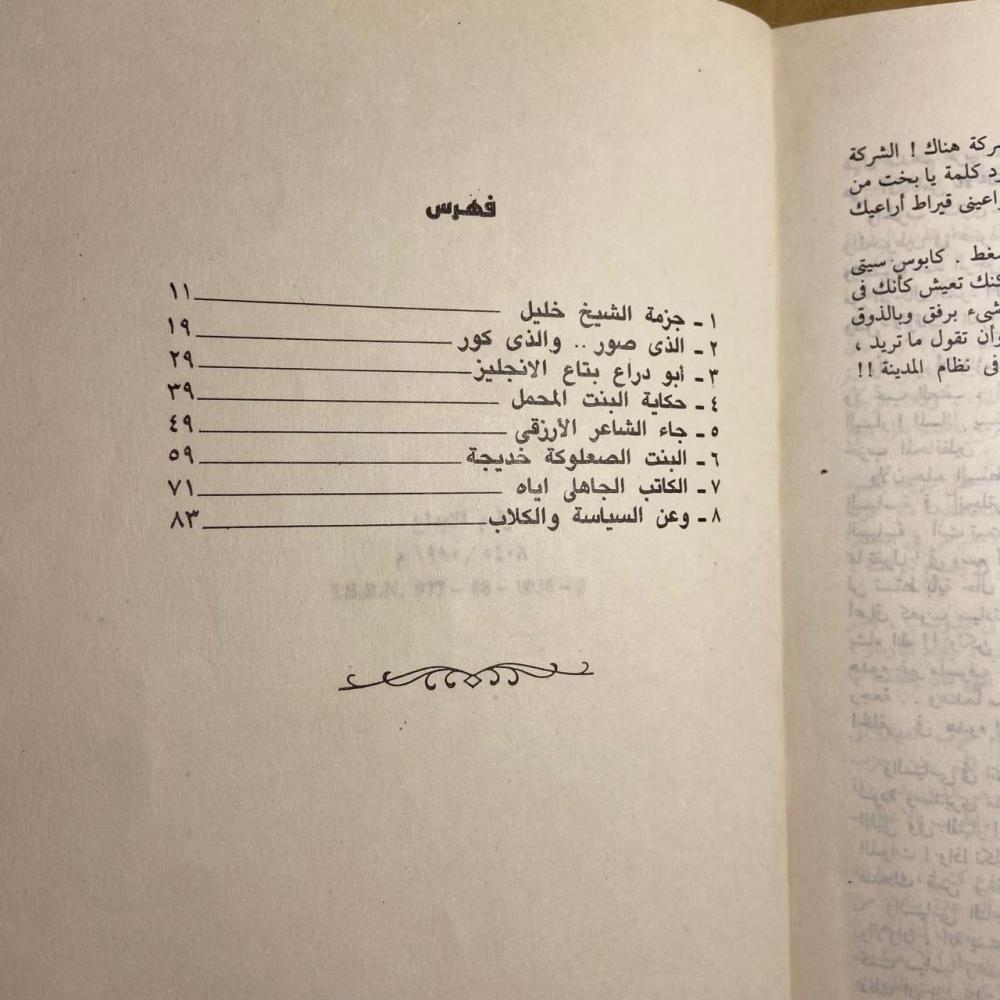 فهرس
١ - جزمة الشيخ خليل ١١
٢ - الذى صور .. والذى كور ١٩
٣ - أبو دراع بتاع الانجليز ٢٩
٤ - حكاية البنت المحمل ٣٩
٥ - جاء الشاعر الأرزقى ٤٩
٦ - البنت الصعلوكة خديجة ٥٩
٧ - الكاتب الجاهلى اياه ٧١
٨ - وعن السياسة والكلاب ٨٣
هناك ! الشركة
كلمة يا بخت من
قيراط أراعيك
. كابوس سيتى
تعيش كأنك فى
برفق وبالذوق
تقول ما تريد ،
فى نظام المدينة !!